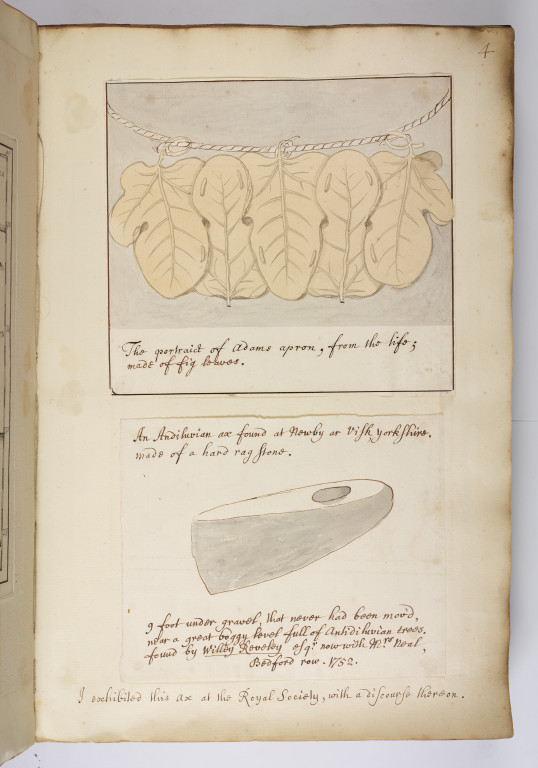 4
The portraict of Adams apron, from the life;
made of fig leaves.
An Andiluvian ax found at Newby ar Vish, yorkshire.
made of a hard rag stone.
9 foot under gravel, that never had been mov'd,
near a great boggy level full of Antidiluvian trees.
found by Willey Reveley esqr. now with Mrs. Neal,
Bedford row. 1752.
I exhibited this ax at the Royal Society, with a discourse thereon.